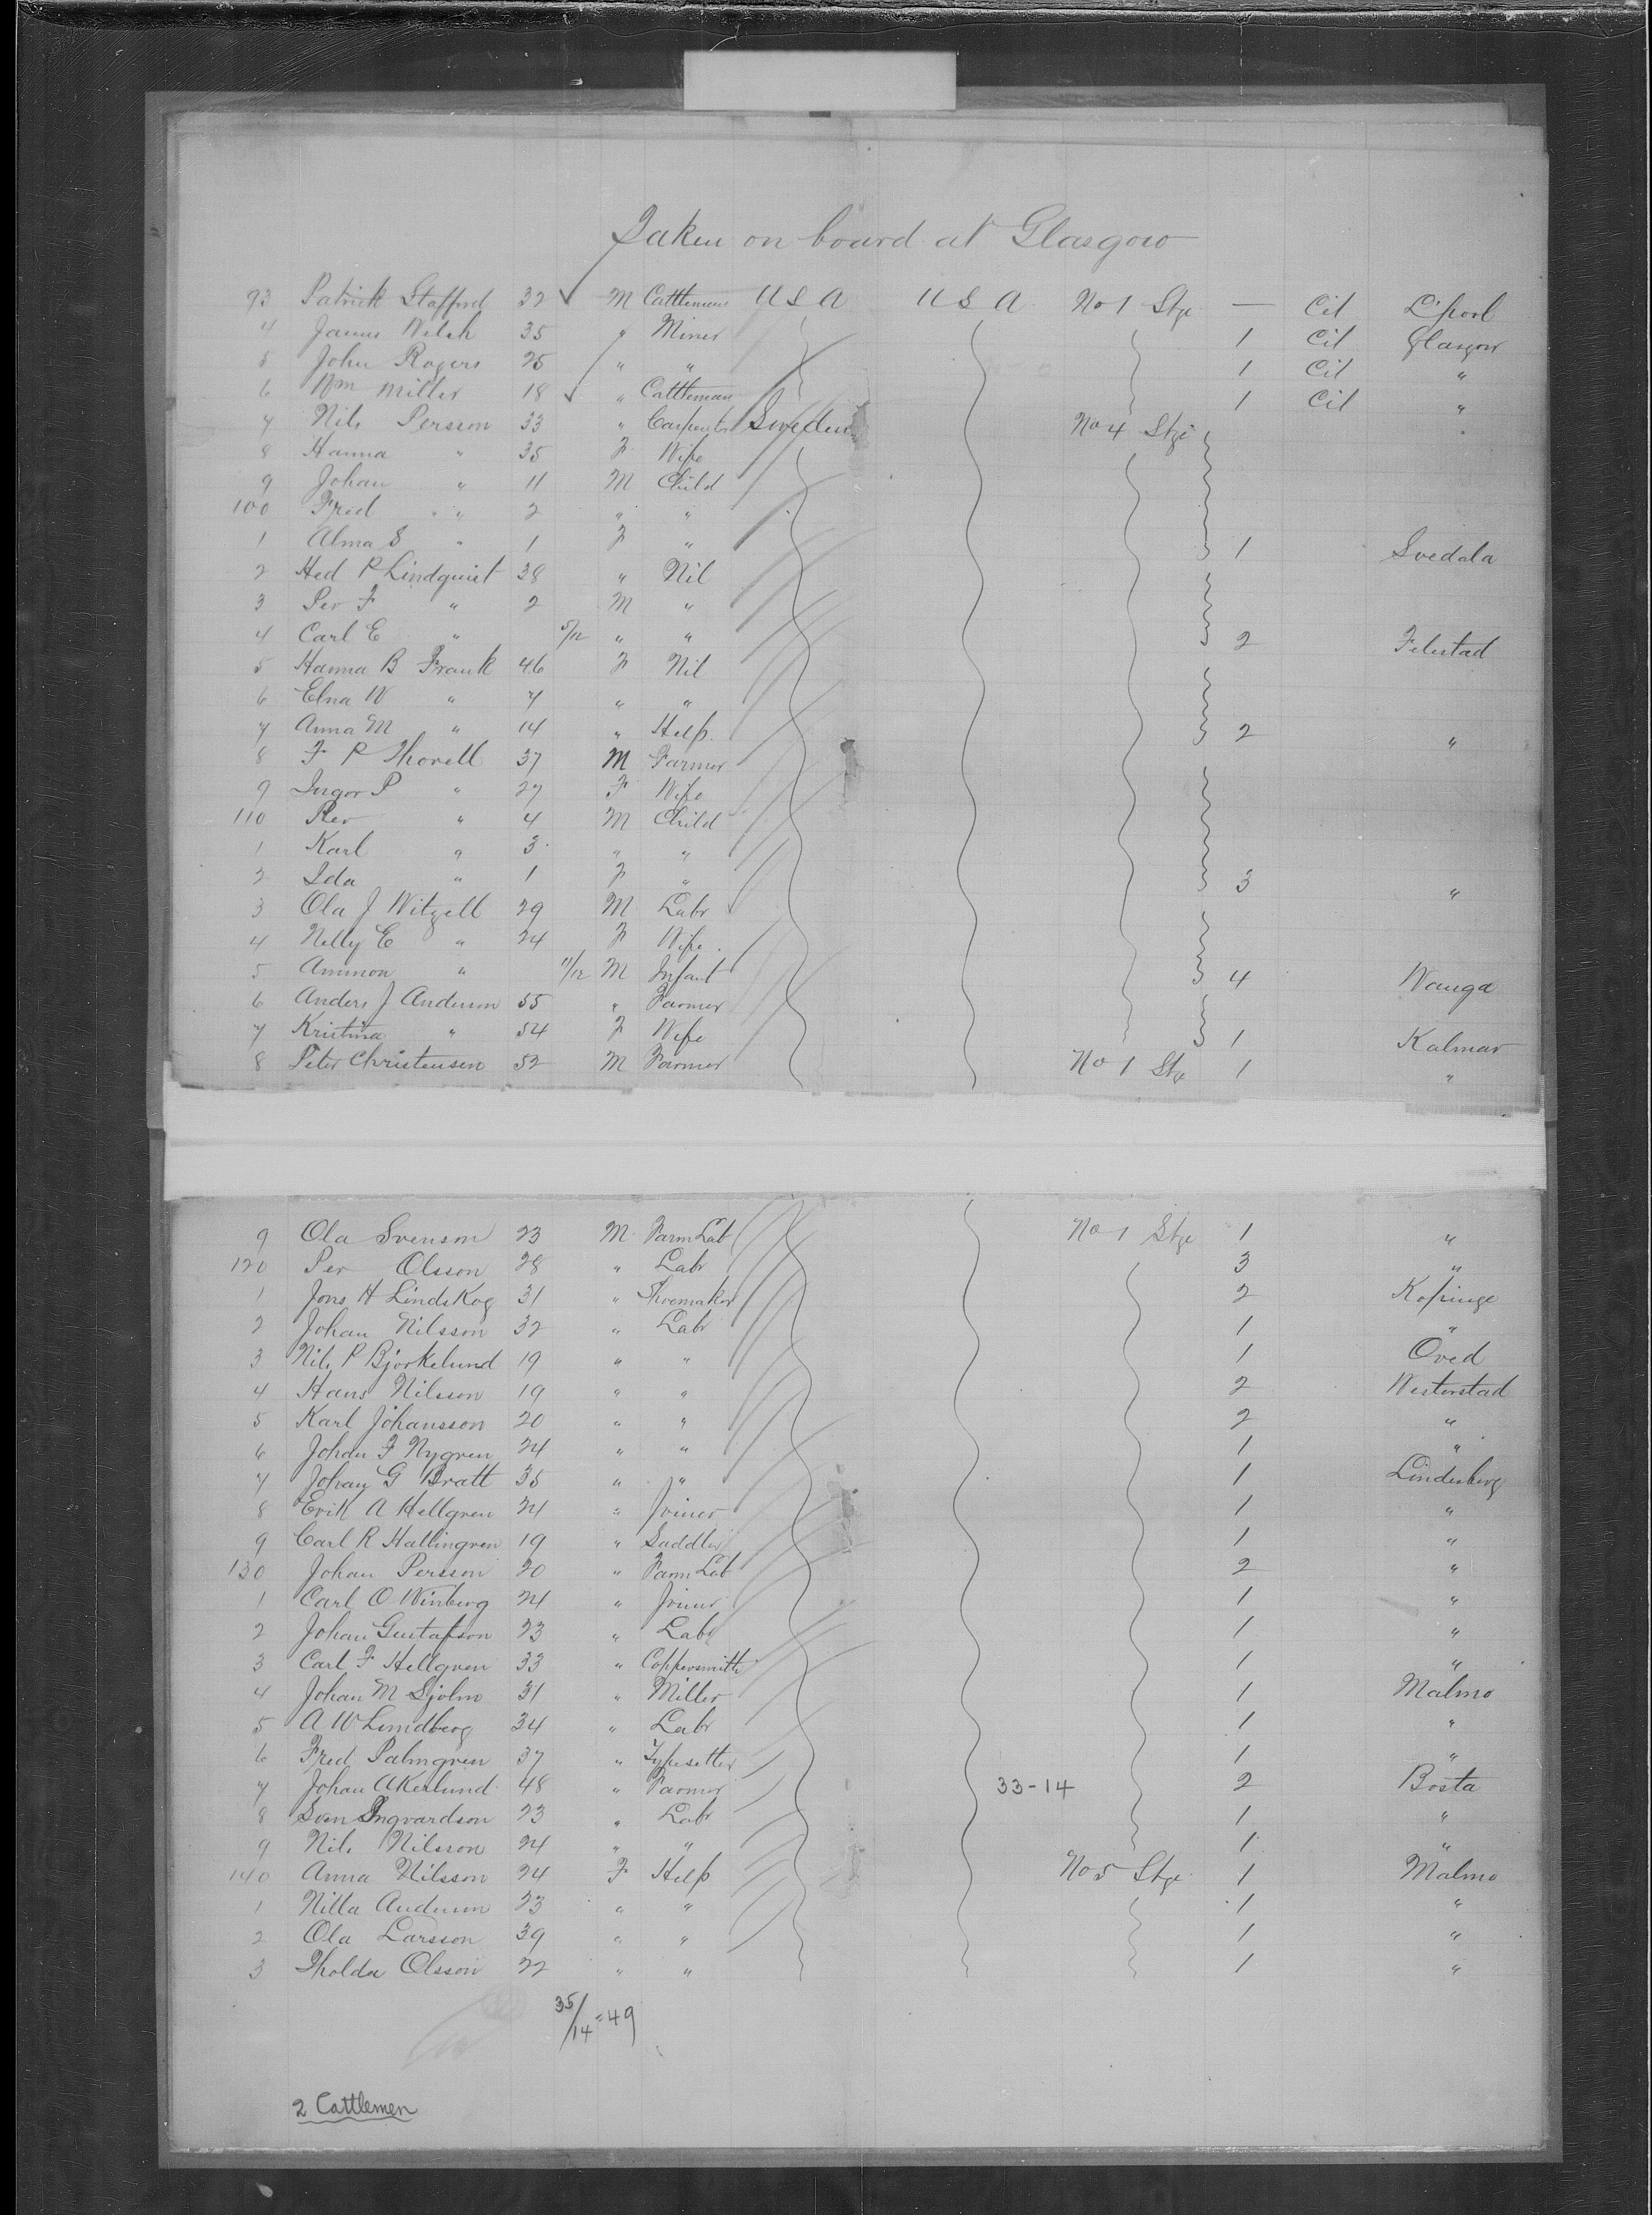 Taken on board at Glasgow
93 Patrick Stafford 32 ✓ M Cattleman U S A U S A No 1 Stge — Cit L'pool
4 James Welsh 35 " Miner 1 Cit Glasgow
5 John Rogers 25 " " 1 Cit "
6 Wm Miller 18 ✓ " Cattleman 1 Cit "
7 Nils Persson 33 " Carpenter Sweden No 4 Stge
8 Hanna " 35 F Wife
9 Johan " 11 M Child
100 Fred " 2 " "
1 Alma S " 1 F " 1 Svedala
2 Hed P Lindquist 38 " Nil
3 Per F " 2 M "
4 Carl E " 5/12 " " 2 Felestad
5 Hanna B Frank 46 F Nil
6 Elna W " 7 " "
7 Anna M " 14 " Help 2 "
8 F P Thorell 37 M Farmer
9 Ingor P " 27 F Wife
110 Per " 4 M Child
1 Karl " 3 " "
2 Ida " 1 F " 3 "
3 Ola J Witzell 29 M Labr
4 Nelly E " 24 F Wife
5 Ammon " 11/12 M Infant 4 Wanga
6 Anders J Anderson 55 " Farmer
7 Kristina " 54 F Wife 1 Kalmar
8 Peter Christensen 52 M Farmer No 1 Stge 1 "
9 Ola Svenson 23 M Farm Lab No 1 Stge 1 "
120 Per Olsson 28 " Labr 3 "
1 Jons H Lindskog 31 " Shoemaker 2 Kopinge
2 Johan Nilsson 32 " Labr 1 "
3 Nils P Bjorkelund 19 " " 1 Oved
4 Hans Nilsson 19 " " 2 Westerstad
5 Karl Johansson 20 " " 2 "
6 Johan F Nygren 24 " " 1 "
7 Johan G Bratt 35 " " 1 Lindesberg
8 Erik A Hellgren 24 " Joiner 1 "
9 Carl R Hallingren 19 " Saddler 1 "
130 Johan Persson 20 " Farm Lab 2 "
1 Carl O Winberg 24 " Joiner 1 "
2 Johan Gustafson 23 " Labr 1 "
3 Carl F Hellgren 33 " Coppersmith 1 "
4 Johan M Sjolm 31 " Miller 1 Malmo
5 A W Lundberg 34 " Labr 1 "
6 Fred Palmgren 37 " Typesetter 1 "
7 Johan Akerlund 48 " Farmer 33-14 2 Bosta
8 Sven Ingvardson 23 " Labr 1 "
9 Nils Nilsson 24 " " 1 "
140 Anna Nilsson 24 F Help No 5 Stge 1 Malmo
1 Nilla Anderson 23 " " 1 "
2 Ola Larsson 39 " " 1 "
3 Tholda Olsson 22 " " 1 "
35/14 = 49
2 Cattlemen